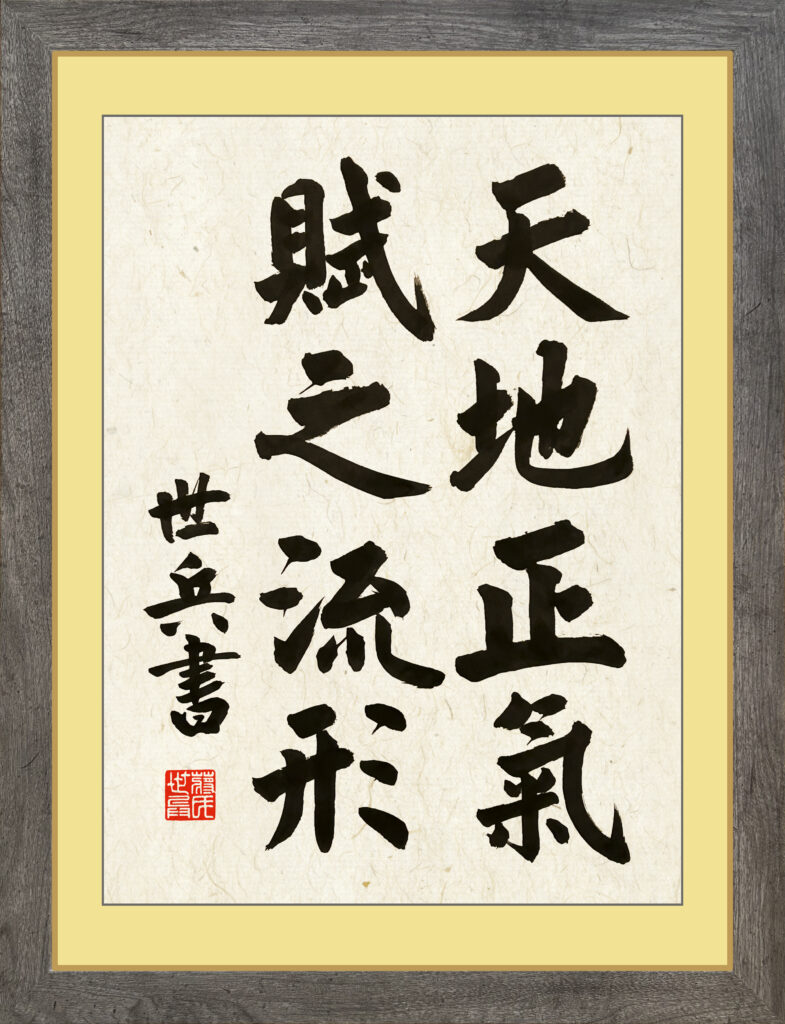 天地正氣
賦之流形
世兵書